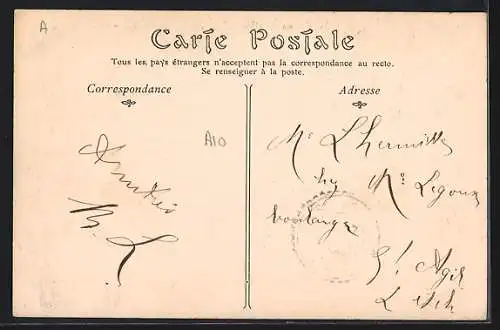 A
Carte Postale
Tous les pays étrangers n'acceptent pas la correspondance au recto.
Se renseigner à la poste.
Correspondance
A10
Amitiés
B. L.
Adresse
Mr Lhermitte
chez Mr Legoux
boulanger
St Agil